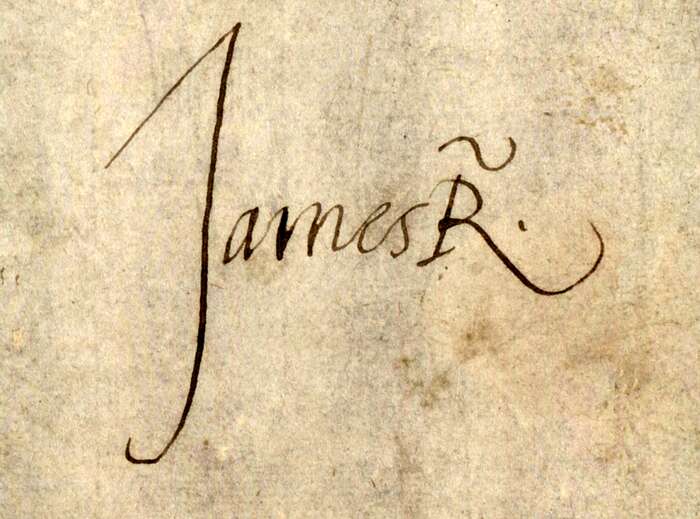 James R̃.